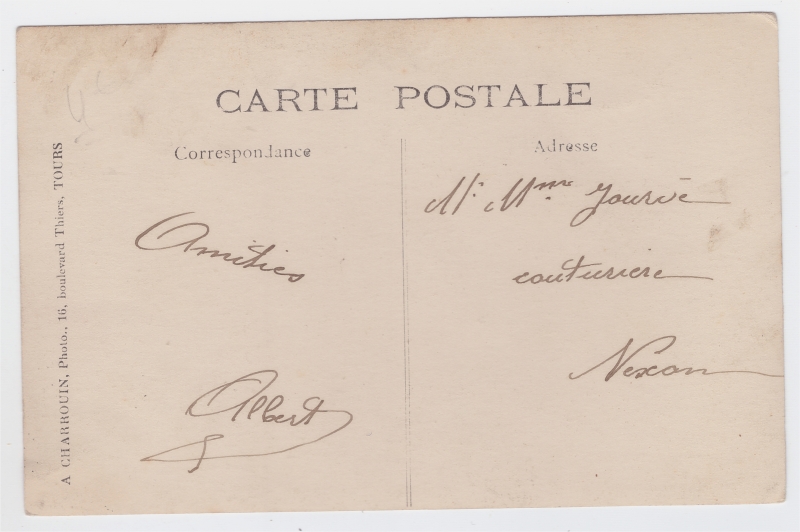 CARTE POSTALE
Correspondance
Adresse
A CHARBOUIN, Photo., 16, boulevard Thiers, TOURS
Amitiés
Albert
Mr Mme Jourvé
couturiere
Nexon